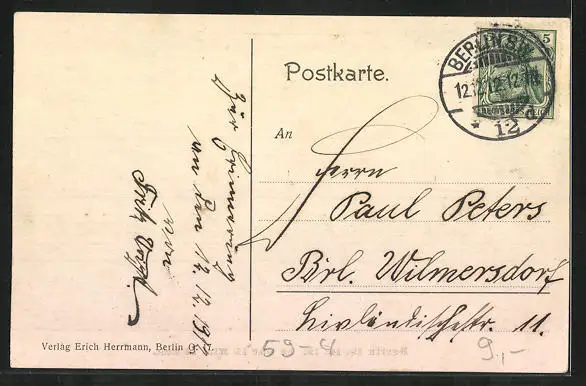 Postkarte.
BERLIN SW
12.12.12.12
* 12 d
5
An
Herrn
Paul Peters
Brl. Wilmersdorf
Livländischestr. 11.
Zur Erinnerung
an den 12.12.1912
von
Fritz
Verlag Erich Herrmann, Berlin O. 17.
59-4
9,-